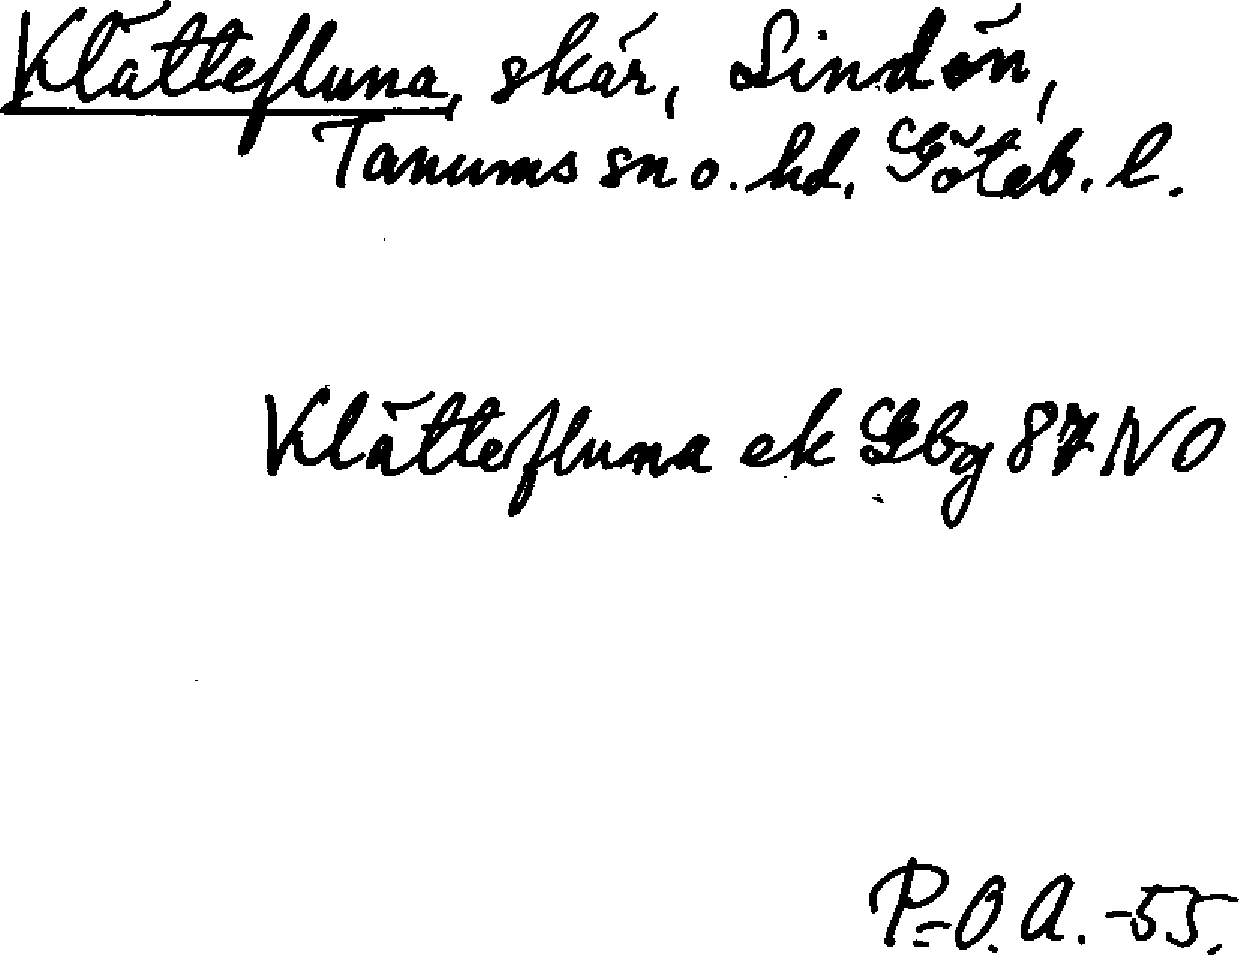 Klättefluna, skär, Lindön,
Tanums sn o. hd. Göteb. l.
Klättefluna ek Gbg 87 NO
P-O.A.-55.